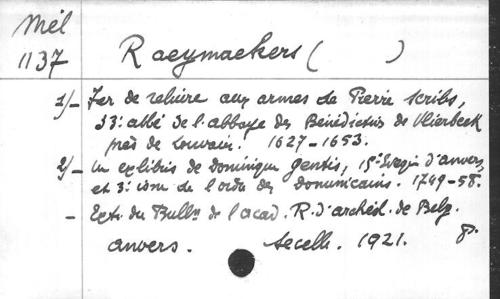 Mél
1137
Raeymaekers ( )
1/- Fer de reliure aux armes de Pierre Scribs,
33e abbé de l'abbaye des Bénédictins de Vlierbeek
près de Louvain. 1627-1653.
2/- Un exlibris de Dominique Gentis, 15e évêque d'Anvers,
et 3e de l'ordre des dominicains. 1749-58.
- Extr. du Bulln de l'Acad. R. d'archéol. de Belg.
Anvers. Secelle. 1921. 8°.